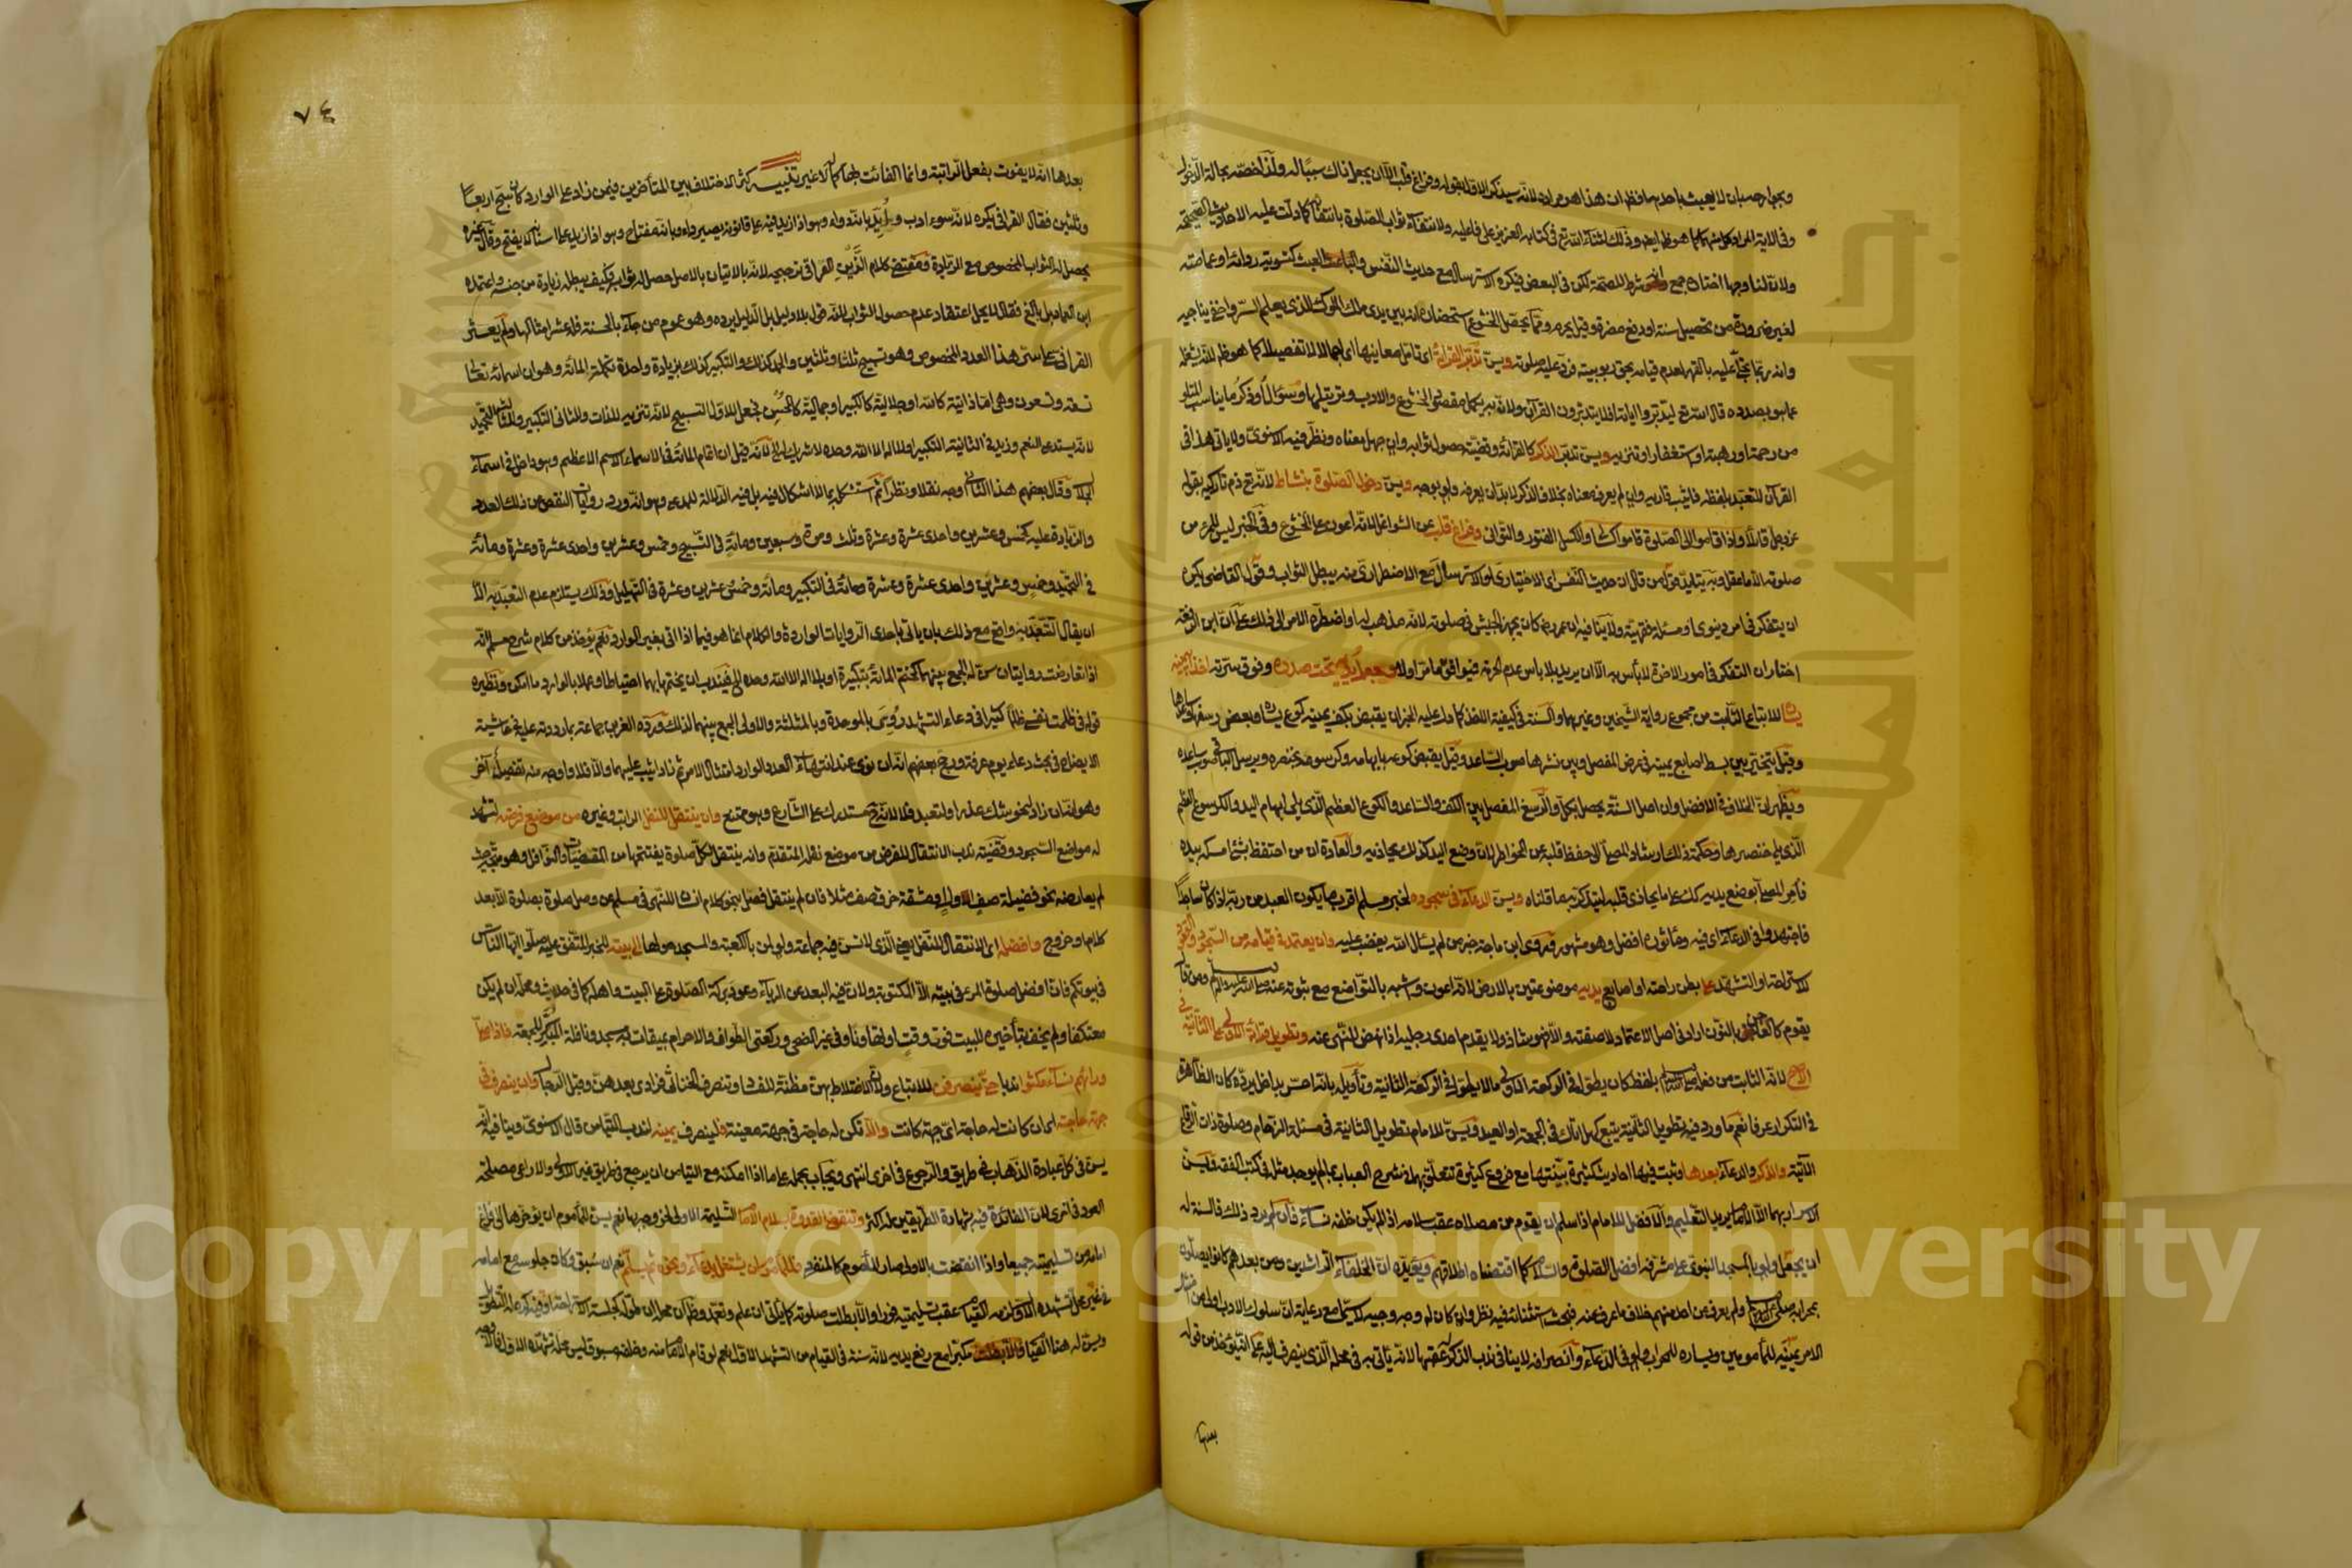 وبجوارحه بان لا يعبث باحدها وظاهر ان هذا هو مراده لانه سيذكر الاول بقوله وفراغ قلب الا ان يجعل ذاك سببا له ولذا خصه بحالة الدخول
وفي الآية المراد كل منهما كما هو ظاهر ايضا وذلك لثناء الله تع في كتابه العزيز على فاعليه ولانتفاء ثواب الصلوة بانتفائه كما دلت عليه الاحاديث الصحيحة
ولان لنا وجها اختاره جمع انه شرط للصحة لكن في البعض فيكره الاسترسال مع حديث النفس والعبث كتسوية ردائه او عمامته
لغير ضرورة من تحصيل سنة او دفع مضرة وقيل يحرم ومما يحصل الخشوع استحضاره انه بين يدي ملك الملوك الذي يعلم السر واخفى يناجيه
وانه ربما تجلى عليه بالقهر لعدم قيامه بحق ربوبيته فرد عليه صلوته ويسن تدبر القراءة اى تامل معانيها اى اجمالا لا تفصيلا كما هو ظاهر لانه يشغله
عما هو بصدده قال الله تع ليدبروا آياته افلا يتدبرون القرآن ولان به يكمل مقصود الخشوع والادب وترتيلها وسؤال او ذكر ما يناسب المتلو
من رحمة او رهبة او استغفار او تنزيه ويسن تدبر الذكر كالقراءة وقضيته حصول ثوابه وان جهل معناه ونظر فيه الاسنوى ولا ياتى هذا في
القرآن للتعبد بلفظه فاثيب قاريه وان لم يعرف معناه بخلاف الذكر لا بد ان يعرفه ولو بوجه ويسن دخول الصلوة بنشاط لانه تع ذم تاركيه بقوله
عز وجل قائلا واذا قاموا الى الصلوة قاموا كسالى والكسل الفتور والتوانى وفراغ قلب من الشواغل لانه اعون على الخشوع وفى الخبر ليس للمرء من
صلوته الا ما عقل وبه يتايد قول من قال ان حديث النفس اى الاختيارى او الاسترسال مع الاضطرارى منه يبطل الثواب وقول القاضى يكره
ان يتفكر في امر دنيوى او مسئلة فقهية ولا ينافيه ان عمر رض كان يجهز الجيش في صلوته لانه مذهب له او اضطره الامر الى ذلك على ان ابن الرفعة
اختار ان التفكر في امور الآخرة لا بأس به الا ان يريد بلا بأس عدم الحرمة فيوافق ما مر اولا وجعل يديه تحت صدره وفوق سرته آخذا بيمينه
يساره للاتباع الثابت من مجموع رواية الشيخين وغيرهما والسنة في كيفية الاخذ كما دل عليه الخبران يقبض بكف يمينه كوع يساره وبعض رسغها وساعدها
وقيل يتخير بين بسط اصابع يمينه في عرض المفصل وبين نشرها صوب الساعد وقيل يقبض كوعه بابهامه وكرسوعه بخنصره ويرسل الباقى صوب ساعده
ويظهر ان الخلاف في الافضل وان اصل السنة يحصل بكل والرسغ المفصل بين الكف والساعد والكوع العظم الذى يلى ابهام اليد والكرسوع العظم
الذى يلى خنصرها وحكمة ذلك ارشاد المصلى الى حفظ قلبه عن الخواطر لان وضع اليد كذلك يحاذيه والعادة ان من احتفظ بشئ امسكه بيده
فامر المصلى بوضع يديه كذلك على ما يحاذى قلبه ليتذكر به ما قلناه ويسن الدعاء في سجوده لخبر مسلم اقرب ما يكون العبد من ربه اذا كان ساجدا
فاجتهدوا في الدعاء اى فيه ومأثوره افضل وهو مشهور وقد روى ابن ماجة خبر من لم يسأل الله يغضب عليه وان يعتمد في قيامه من السجود والقعود
للاستراحة او التشهد على بطن راحته او اصابع يديه موضوعتين بالارض لانه اعون واشبه بالتواضع مع ثبوته عنه صلى الله عليه وسلم ومن قال
يقوم كالعاجن بالنون اراد في اصل الاعتماد لا صفته والا فهو شاذ ولا يقدم احدى رجليه اذا نهض للنهى عنه وتطويل قراءة الاولى على الثانية في
الاصح لانه الثابت من فعله صلى الله عليه وسلم بلفظ كان يطول في الركعة الاولى ما لا يطول في الركعة الثانية وتأويله بانه احس بداخل يرده كان الظاهرة
في التكرار عرفا نعم ما ورد فيه تطويل الثانية يتبع كهل اتاك في الجمعة او العيد ويسن للامام تطويل الثانية في مسئلة الزحام وصلوة ذات الرقاع
الآتية والذكر والدعاء بعدها وثبت فيها احاديث كثيرة بينتها مع فروع كثيرة تتعلق بها في شرح العباب بما لم يوجد مثله في كتب الفقه فليسن
الاسرار بهما الا لامام يريد التعليم والافضل للامام اذا سلم ان يقوم من مصلاه عقب سلامه اذا لم يكن خلفه نساء فان لم يرد ذلك فالسنة له
ان يجعل ولو بالمسجد النبوى على مشرفه افضل الصلوة والسلام كما اقتضاه اطلاقهم ويؤيده ان الخلفاء الراشدين ومن بعدهم كانوا يصلون
بمحرابه صلى الله عليه وسلم ولم يعرف عن احد منهم خلاف ما عرف عنه فبحث استثنائه فيه نظر وان كان له وجه وجيه لا سيما مع رعاية ان سلوك الادب اولى من امتثال
الامر يمينه للمأمومين ويساره للمحراب ولو في الدعاء وانصرافه لا ينافى ندب الذكر له عقبها لانه يأتى به في محله الذى ينصرف اليه على انه يؤخذ من قوله
بعدها
٧٤
بعدها انه لا يفوت بفعل الراتبة وانما الفائت بها كماله لا غير تنبيه كثر الاختلاف بين المتأخرين فيمن زاد على الوارد كان سبح اربعا
وثلثين فقال القرافى يكره لانه سوء ادب وايد بانه دواء وهو اذا زيد فيه على قانونه يصير داء وبانه مفتاح وهو اذا زيد على اسنانه لا يفتح وقال غيره
يحصل له الثواب المخصوص مع الزيادة ومقتضى كلام الزين العراقى ترجيحه لانه بالاتيان بالاصل حصل له ثوابه فكيف يبطله زيادة من جنسه واعتمده
ابن العماد بل بالغ فقال لا يحل اعتقاد عدم حصول الثواب لانه قول بلا دليل بل الدليل يرده وهو عموم من جاء بالحسنة فله عشر امثالها ولم يعثر
القرافى على سر هذا العدد المخصوص وهو تسبيح ثلثا وثلثين والحمد كذلك والتكبير كذلك بزيادة واحدة تكملة المائة وهو ان اسمائه تعالى
تسعة وتسعون وهى اما ذاتية كالله او جلالية كالكبير او جمالية كالمحسن فجعل للاول التسبيح لانه تنزيه للذات وللثانى التكبير وللثالث التحميد
لانه يستدعى النعم وزيد في الثانية التكبير او لا اله الا الله وحده لا شريك له الخ لانه قيل ان تمام المائة في الاسماء الاسم الاعظم وهو داخل في اسماء
الجلال وقال بعضهم هذا الثانى اوجه نقلا ونظرا ثم استشكل بما لا اشكال فيه بل فيه الدلالة للمدعى وهو انه ورد روايات النقص عن ذلك العدد
والزيادة عليه كخمس وعشرين واحدى عشرة وعشرة وثلث ومرة وسبعين ومائة في التسبيح وخمس وعشرين واحدى عشرة وعشرة ومائة
في التحميد وخمس وعشرين واحدى عشرة وعشرة ومائة في التكبير ومائة وخمس وعشرين وعشرة في التهليل وذلك يستلزم عدم التعبد به الا
ان يقال التعبد به واقع مع ذلك بان يأتى باحدى الروايات الواردة والكلام انما هو فيما اذا اتى بغير الوارد نعم يؤخذ من كلام شرح مسلم انه
اذا تعارضت روايتان سن له الجمع بينهما كختم المائة بتكبيرة او بلا اله الا الله وحده الخ فيندب ان يختمها بهما احتياطا وعملا بالوارد ما امكن ونظيره
قوله في ظلمت نفسى ظلما كثيرا في دعاء التشهد روى بالموحدة وبالمثلثة والاولى الجمع بينهما لذلك ورده العز بن جماعة بما رددته عليه في حاشية
الايضاح في بحث دعاء يوم عرفة ورجح بعضهم انه ان نوى عند انتهاء العدد الوارد امتثال الامر ثم زاد اثيب عليهما والا فلا واوجه منه تفصيل آخر
وهو انه ان زاد لنحو شك عذر او لتعبد فلا لانه ح مستدرك على الشارع وهو ممتنع وان ينتقل للنفل الراتب وغيره من موضع فرضه لتشهد
له مواضع السجود وقضيته ندب الانتقال للفرض من موضع نفله المتقدم وانه ينتقل لكل صلوة يفتتحها من المقضيات والنوافل وهو متجه حيث
لم يعارضه نحو فضيلة صف الاول او مشقة خرق صف مثلا فان لم ينتقل فصل بنحو كلام انسان للنهى في مسلم عن وصل صلوة بصلوة الا بعد
كلام او خروج وافضله اى الانتقال للنفل يعنى الذى لا تسن فيه جماعة ولو لمن بالكعبة والمسجد حولها الى بيته للخبر المتفق عليه صلوا ايها الناس
في بيوتكم فان افضل صلوة المرء في بيته الا المكتوبة ولان فيه البعد عن الرياء وعود بركة الصلوة على البيت واهله كما في حديث ومحله ان لم يكن
معتكفا ولم يخف بتأخيره للبيت فوت وقت او تهاونا وفى غير الضحى وركعتى الطواف والاحرام بميقات به مسجد ونافلة المبكر للجمعة فاذا صلى
ورائهم نساء مكثوا ندبا حتى ينصرفن للاتباع ولان الاختلاط بهن مظنة للفساد وتنصرف الخناثى فرادى بعدهن وقبل الرجال وان ينصرف في
جهة حاجته اى ان كانت له حاجة اى جهة كانت والا تكن له حاجة في جهة معينة فلينصرف بيمينه لندب التيامن قال الاسنوى وينافيه انه
يسن في كل عبادة الذهاب في طريق والرجوع في اخرى انتهى ويجاب بحمله على ما اذا امكنه مع التيامن ان يرجع في طريق غير الاولى والا راعى مصلحة
العود في اخرى لان الفائدة فيه بشهادة الطريقين له اكثر وتنقضى القدوة بسلام الامام التسليمة الاولى لخروجه بها نعم يسن للمأموم ان يؤخرها الى فراغ
امامه من تسليمتيه جميعا واذا انقضت بالاولى صار المأموم كالمنفرد فللمأموم ان يشتغل بدعاء ونحوه ثم يسلم نعم ان سبق وكان جلوسه مع امامه
في غير محل تشهده الاول لزمه القيام عقب تسليمتيه فورا والا بطلت صلوته كما يأتى ان علم وتعمد وظاهر ان محله ان طوله كجلسة الاستراحة
ويسن له هنا القيام مكبرا مع رفع يديه لانه سنة في القيام من التشهد الاول نعم لو قام الامام منه وخلفه مسبوق ليس محل تشهده الاول فالاوجه
Copyright © King Saud University